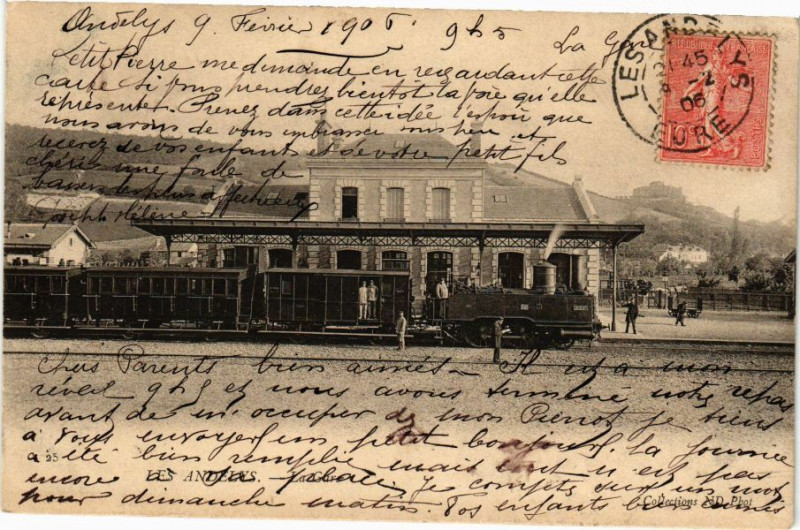 Andelys 9 Février 1906. 9h5
La Gare
Petit Pierre me demande en regardant cette
carte si vous prendrez bientôt la voie qu'elle
représente. Prenez dans cette idée l'espoir que
nous avons de vous embrasser sous peu et
recevez de vos enfants et de votre petit fils
chéris une foule de
baisers les plus affectueux
Joseph Hélène
LES ANDELYS
45
9 -2
06
EURE
REPUBLIQUE FRANÇAISE
10
Chers Parents bien aimés - Il est à mon
réveil 9h5 et nous avons terminé notre repas
avant de m'occuper de mon Pierrot je tiens
à vous envoyer un petit bonjour. la journée
a été bien remplie mais tout n'est pas
encore en place. Je compte sur un mot
pour dimanche matin Vos enfants bien aimés
25
LES ANDELYS. - La Gare
Collections ND Phot